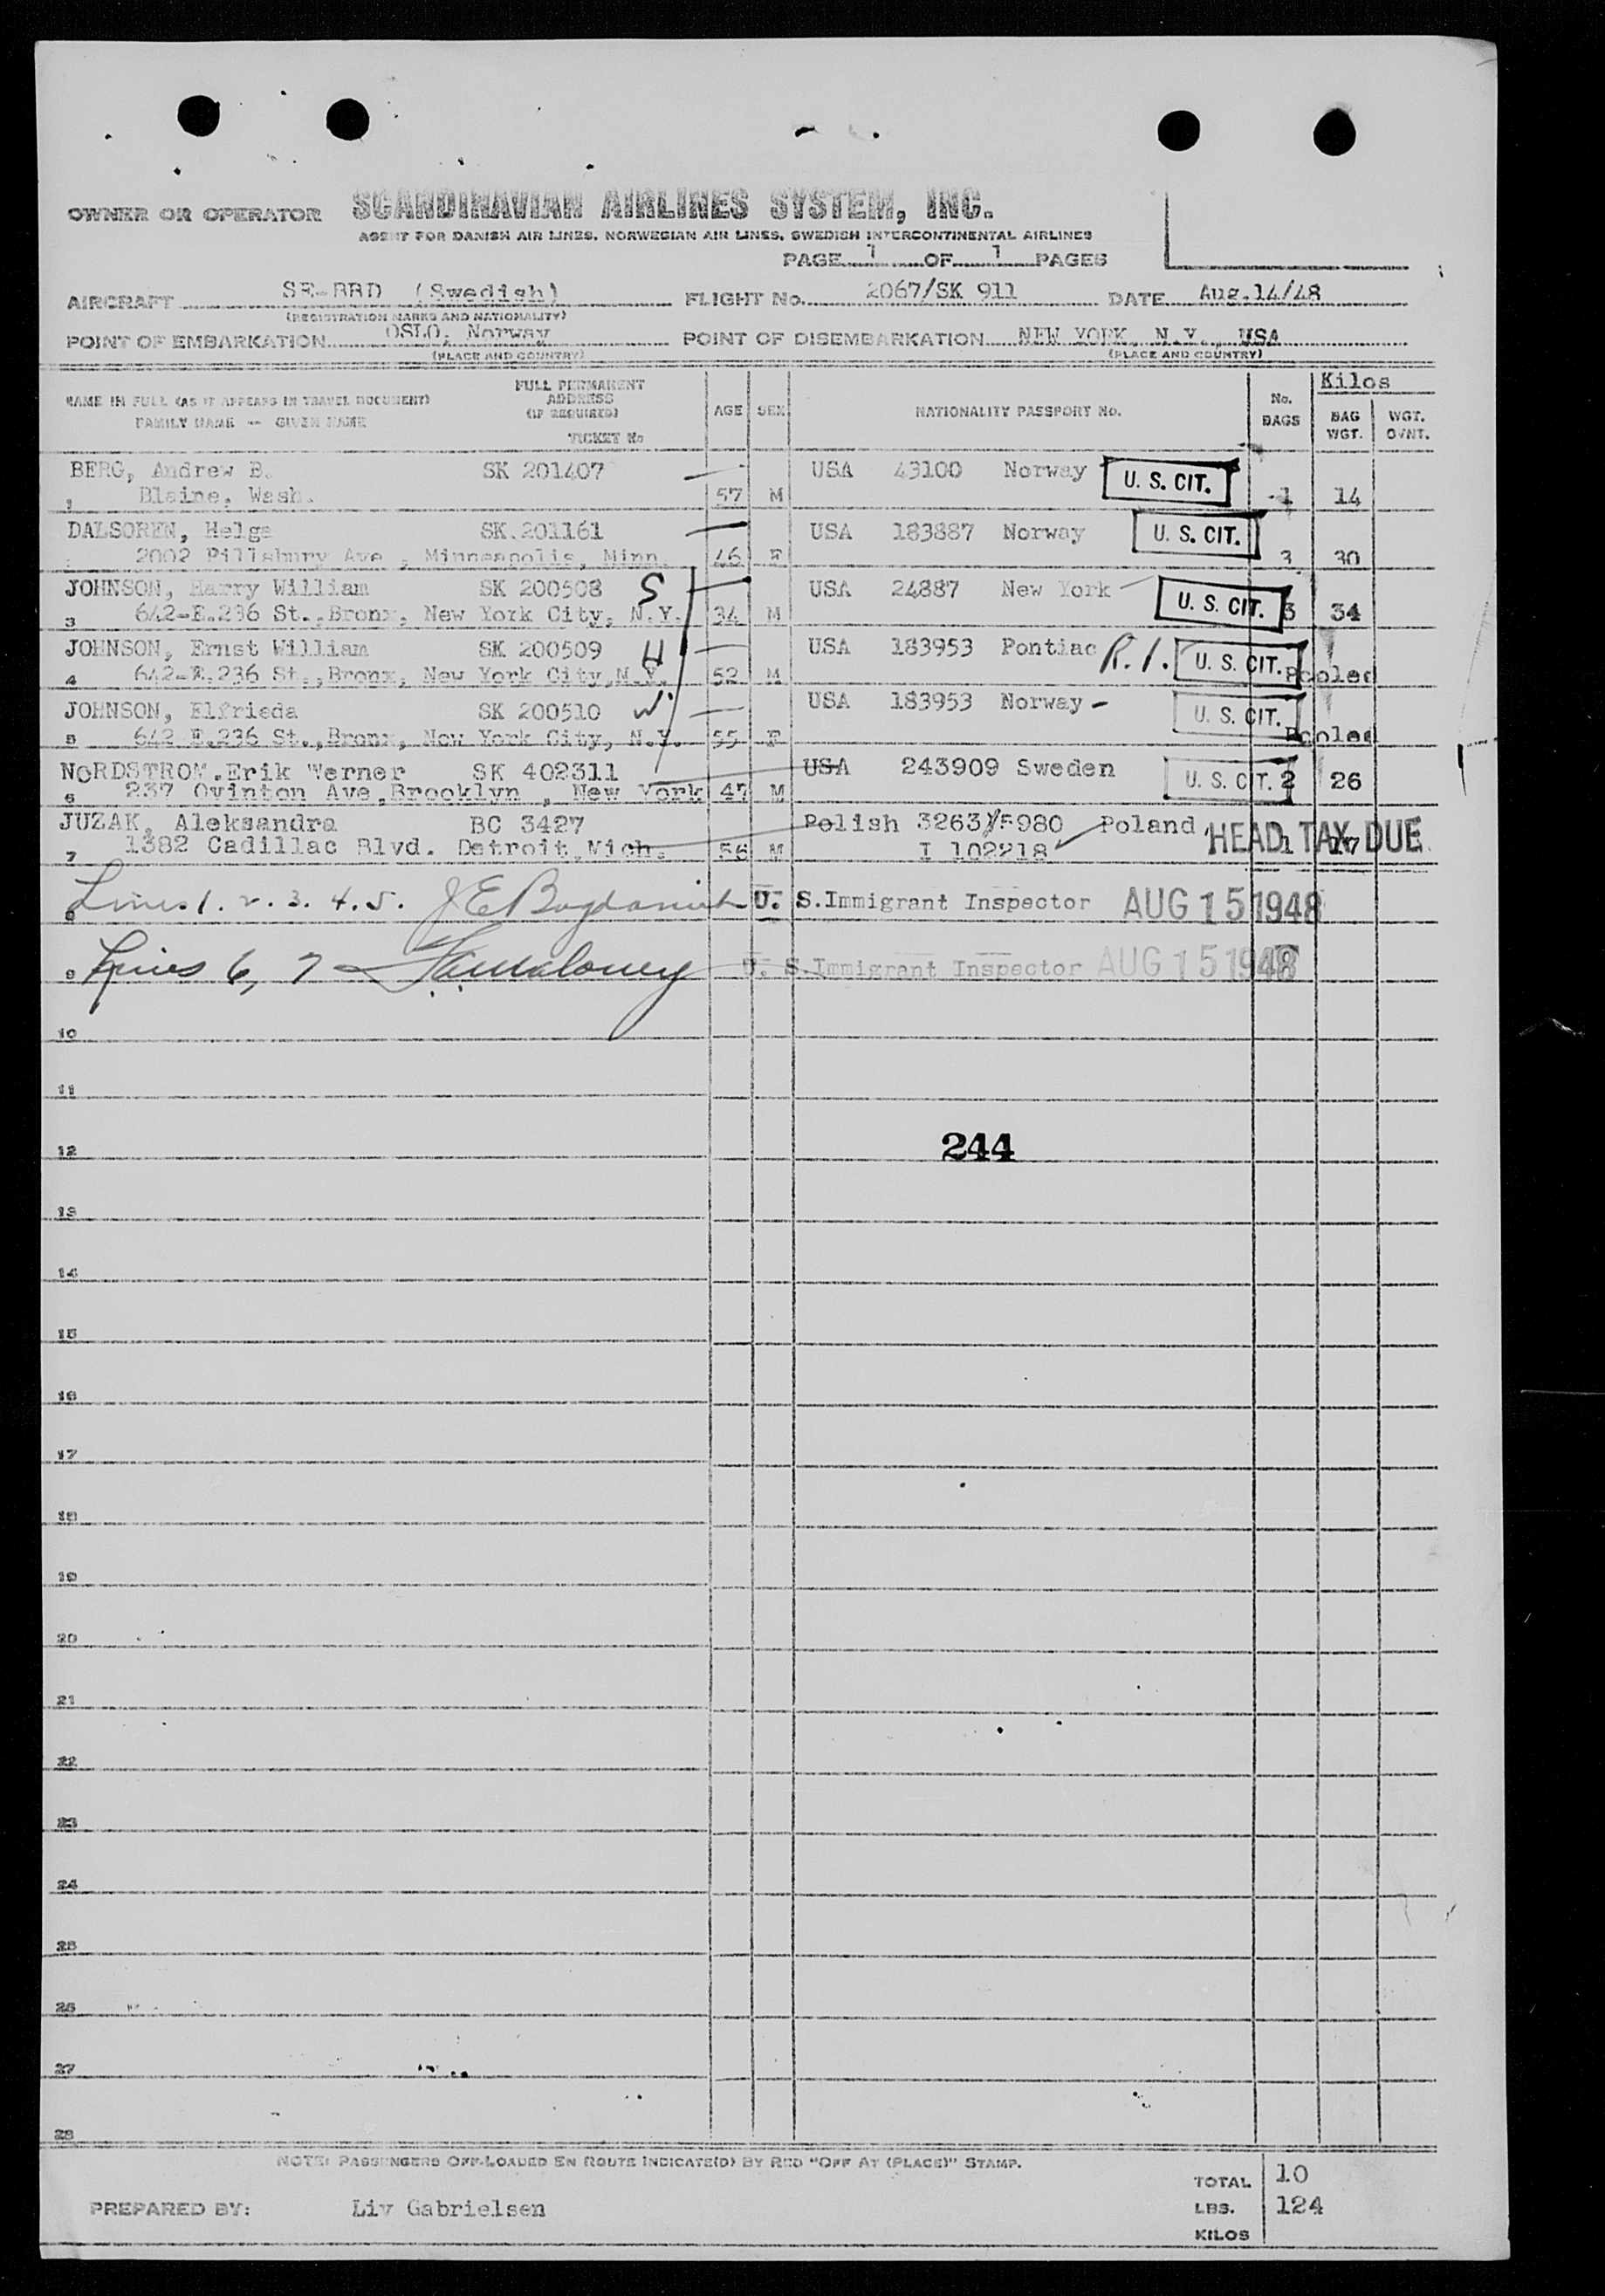 OWNER OR OPERATOR SCANDINAVIAN AIRLINES SYSTEM, INC.
AGENT FOR DANISH AIR LINES, NORWEGIAN AIR LINES, SWEDISH INTERCONTINENTAL AIRLINES
PAGE 1 OF 1 PAGES
AIRCRAFT SE-BBD (Swedish) FLIGHT No. 2067/SK 911 DATE Aug.14/48
(REGISTRATION MARKS AND NATIONALITY)
POINT OF EMBARKATION OSLO, Norway POINT OF DISEMBARKATION NEW YORK, N.Y., USA
(PLACE AND COUNTRY) (PLACE AND COUNTRY)
NAME IN FULL (AS IT APPEARS IN TRAVEL DOCUMENT)
FAMILY NAME -- GIVEN NAME
FULL PERMANENT
ADDRESS
(IF REQUIRED)
TICKET No
AGE SEX NATIONALITY PASSPORT No. No. BAGS Kilos BAG WGT. WGT. OVNT.
BERG, Andrew B. SK 201407 USA 43100 Norway U. S. CIT.
1 Blaine, Wash. 57 M 1 14
DALSOREN, Helga SK.201161 USA 183887 Norway U. S. CIT.
2002 Pillsbury Ave , Minneapolis, Minn. 46 F 3 30
JOHNSON, Harry William SK 200508 S USA 24887 New York U. S. CIT.
3 642-E.236 St.,Bronx, New York City, N.Y. 34 M 3 34
JOHNSON, Ernst William SK 200509 H USA 183953 Pontiac R.I. U. S. CIT.
4 642-E.236 St.,Bronx, New York City,N.Y. 52 M Pooled
JOHNSON, Elfrieda SK 200510 W USA 183953 Norway - U. S. CIT.
5 642 E.236 St.,Bronx, New York City, N.Y. 55 F Pooled
NORDSTROM.Erik Werner SK 402311 USA 243909 Sweden U. S. CIT. 2 26
6 237 Ovington Ave,Brooklyn , New York 47 M
JUZAK, Aleksandra BC 3427 Polish 3263/5980 Poland HEAD TAX DUE
7 1382 Cadillac Blvd. Detroit,Mich. 56 M I 102218 1
8 Lines 1. 2. 3. 4. 5. U. S.Immigrant Inspector AUG 15 1948
9 Lines 6, 7 U. S.Immigrant Inspector AUG 15 1948
10
11
12 244
13
14
15
16
17
18
19
20
21
22
23
24
25
26
27
28
NOTE: PASSENGERS OFF-LOADED EN ROUTE INDICATE(D) BY RED "OFF AT (PLACE)" STAMP.
TOTAL 10
PREPARED BY: Liv Gabrielsen LBS. 124
KILOS